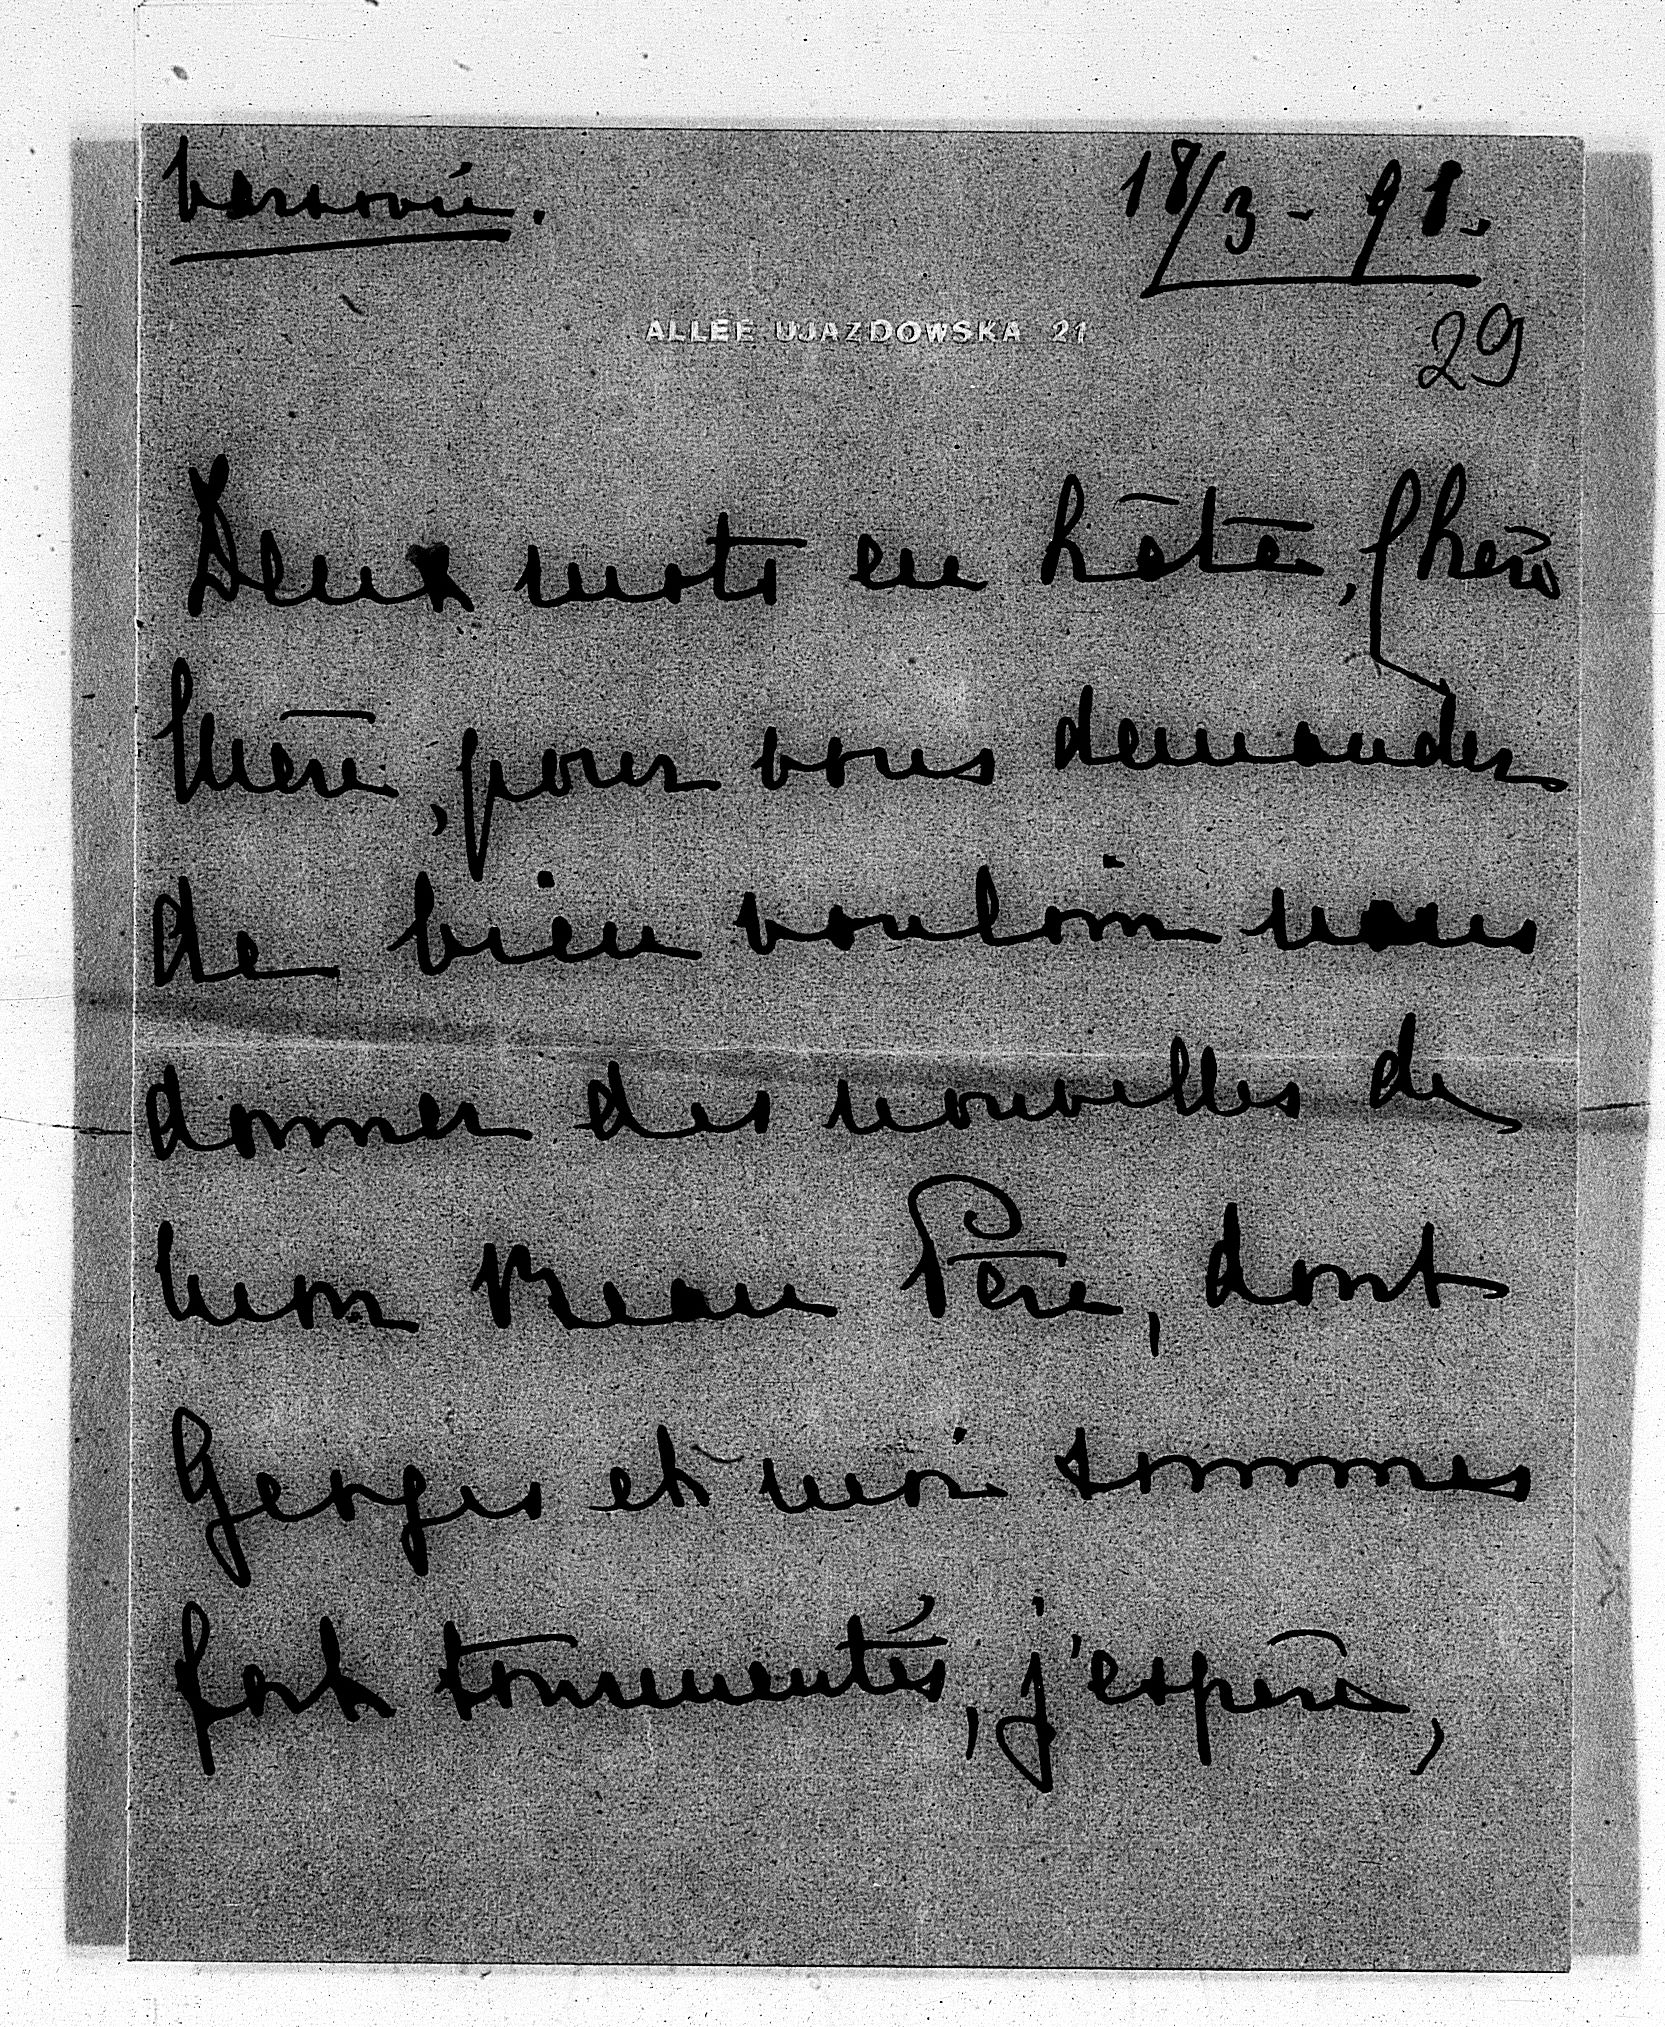 Varsovie. 18/3 - 98.
ALLÉE UJAZDOWSKA 21
29
Deux mots en hâte, Chère
Mère, pour vous demander
de bien vouloir nous
donner des nouvelles de
mon Beau Père, dont
Georges et moi sommes
fort tourmentés, j'espère,